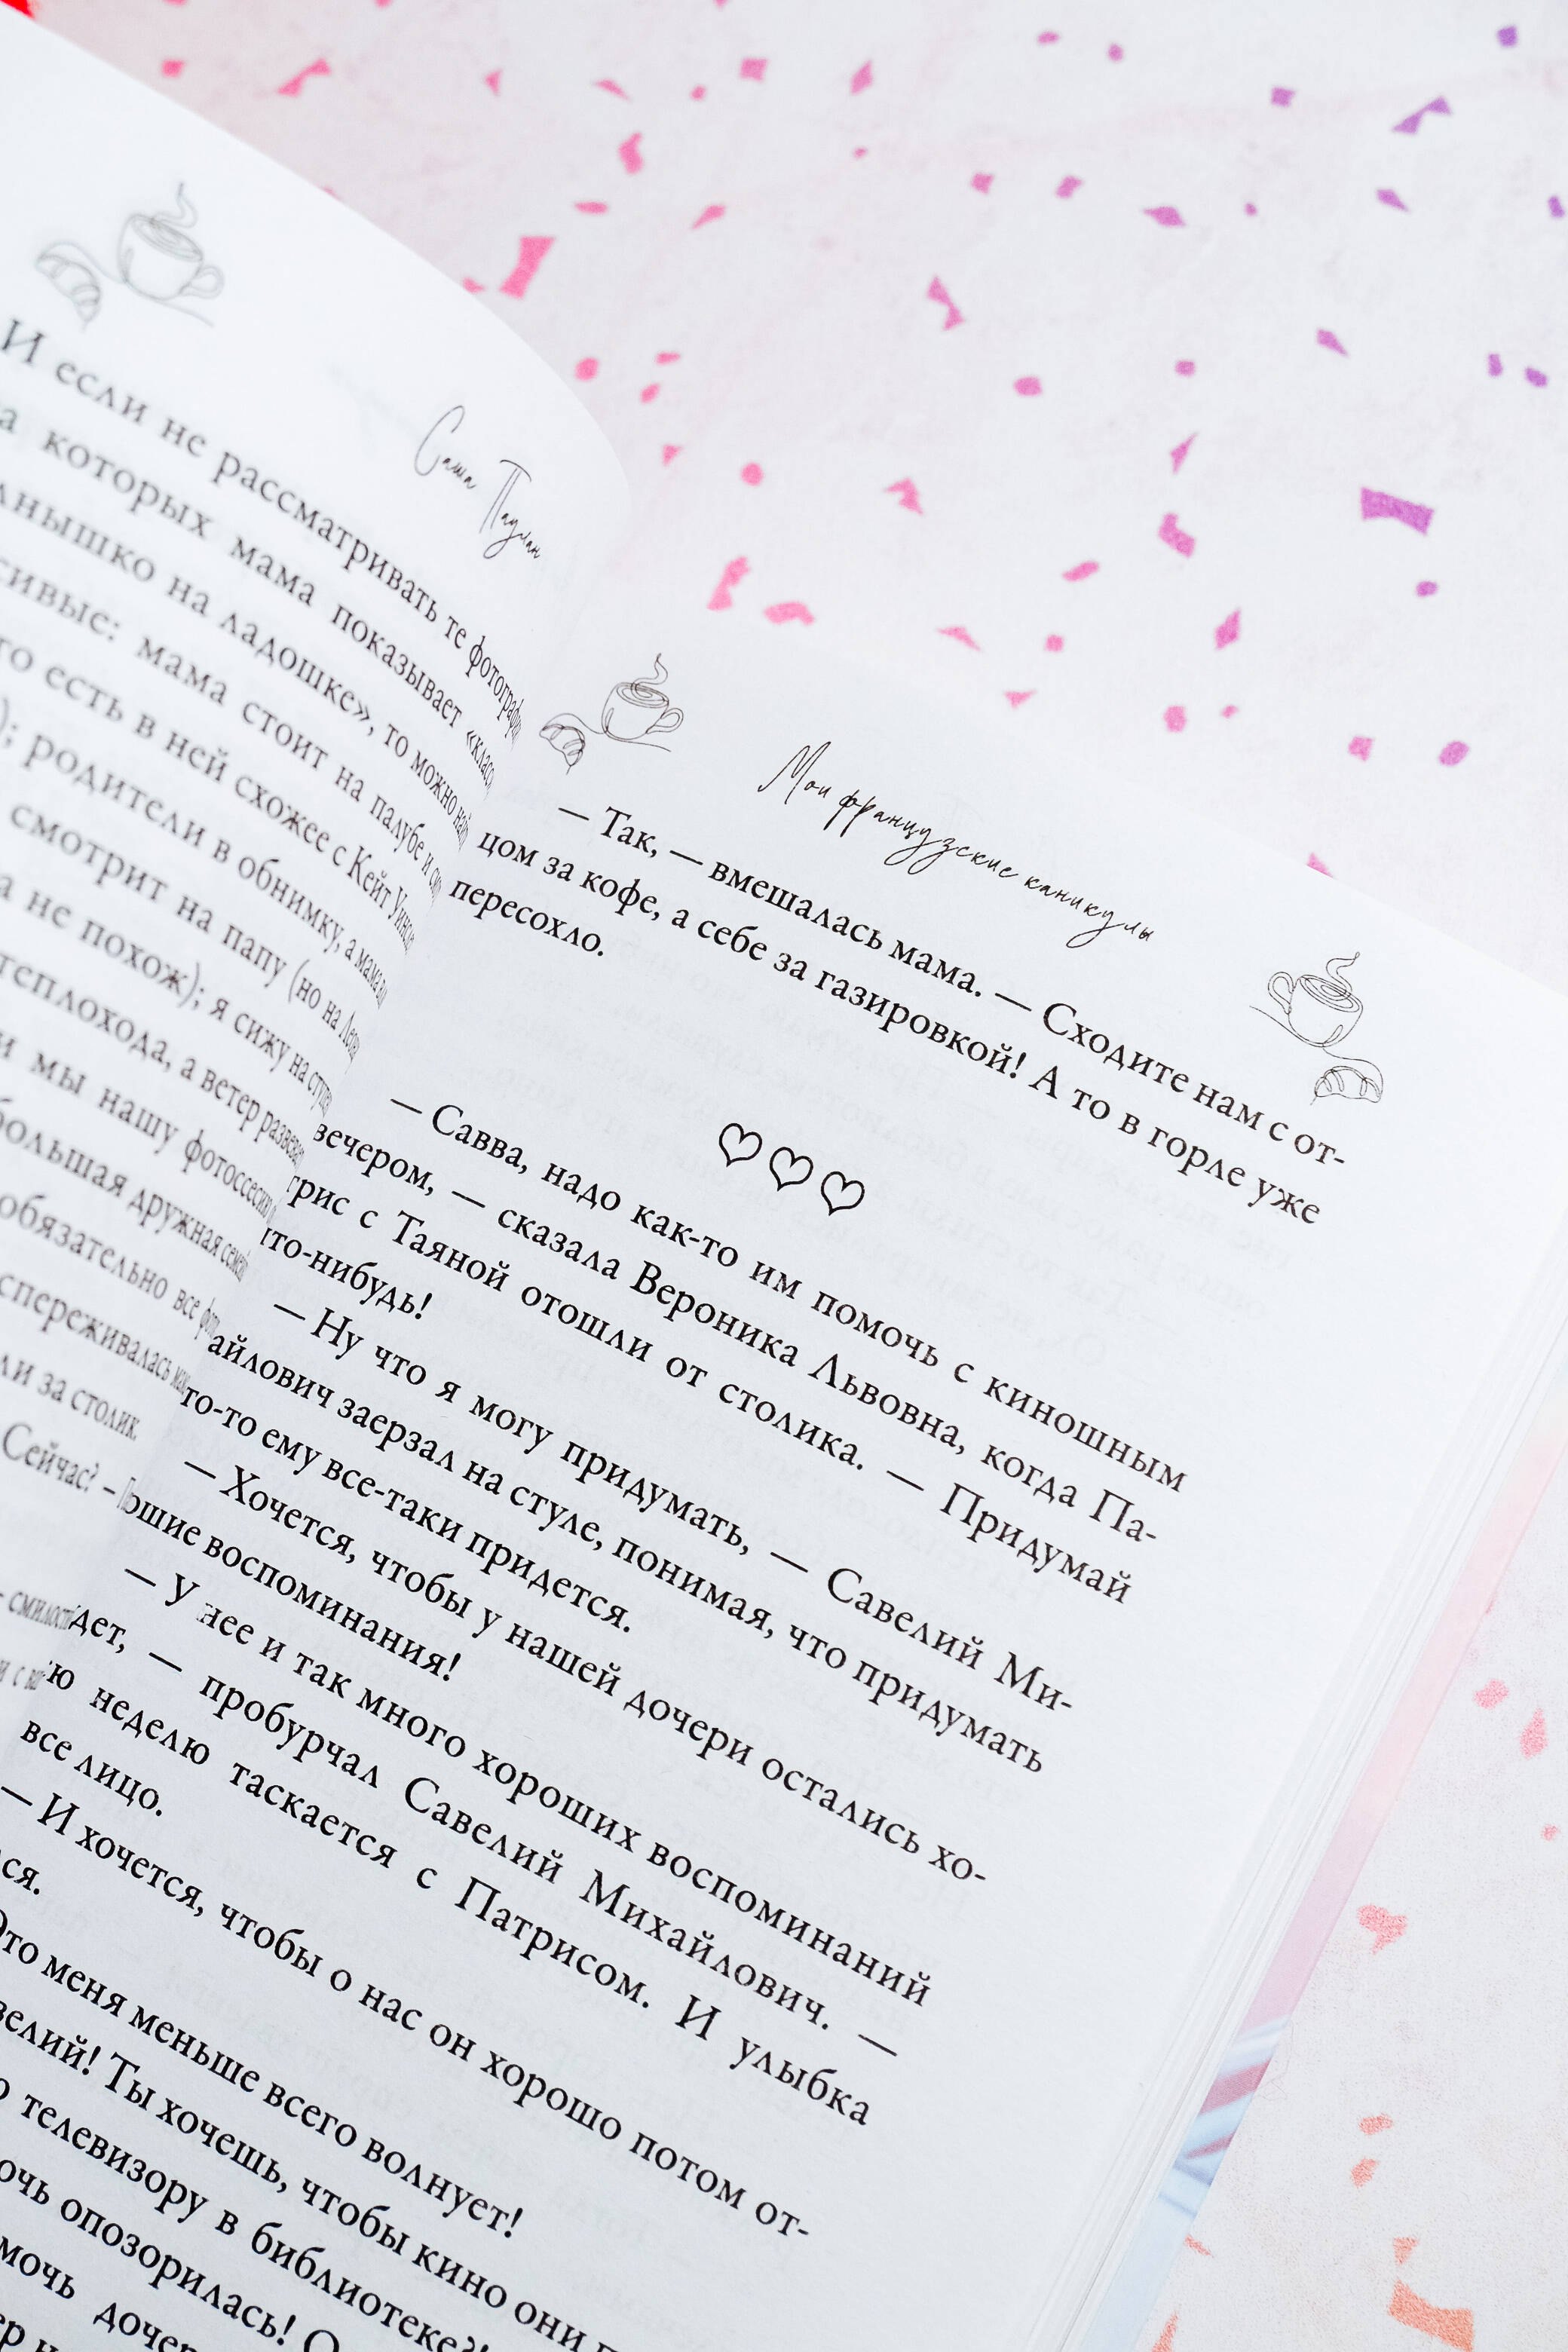 Саша Паулан
И если не рассматривать те
которых мама показывает
на ладошке», то можно
мама стоит на палубе и
есть в ней схожее с Кейт
родители в обнимку, а мама
смотрит на папу (но на
не похож); я сижу на
теплохода, а ветер
мы нашу
большая дружная
обязательно все
за столик.
Сейчас? –
Мои французские каникулы
— Так, — вмешалась мама. — Сходите нам с от-
цом за кофе, а себе за газировкой! А то в горле уже
пересохло.
— Савва, надо как-то им помочь с киношным
вечером, — сказала Вероника Львовна, когда Па-
трис с Таяной отошли от столика. — Придумай
что-нибудь!
— Ну что я могу придумать, — Савелий Ми-
айлович заерзал на стуле, понимая, что придумать
то-то ему все-таки придется.
— Хочется, чтобы у нашей дочери остались хо-
ошие воспоминания!
— У нее и так много хороших воспоминаний
дет, — пробурчал Савелий Михайлович. —
ю неделю таскается с Патрисом. И улыбка
все лицо.
— И хочется, чтобы о нас он хорошо потом от-
ся.
Это меня меньше всего волнует!
велий! Ты хочешь, чтобы кино они
телевизору в библиотеке?!
очь опозорилась!
мочь